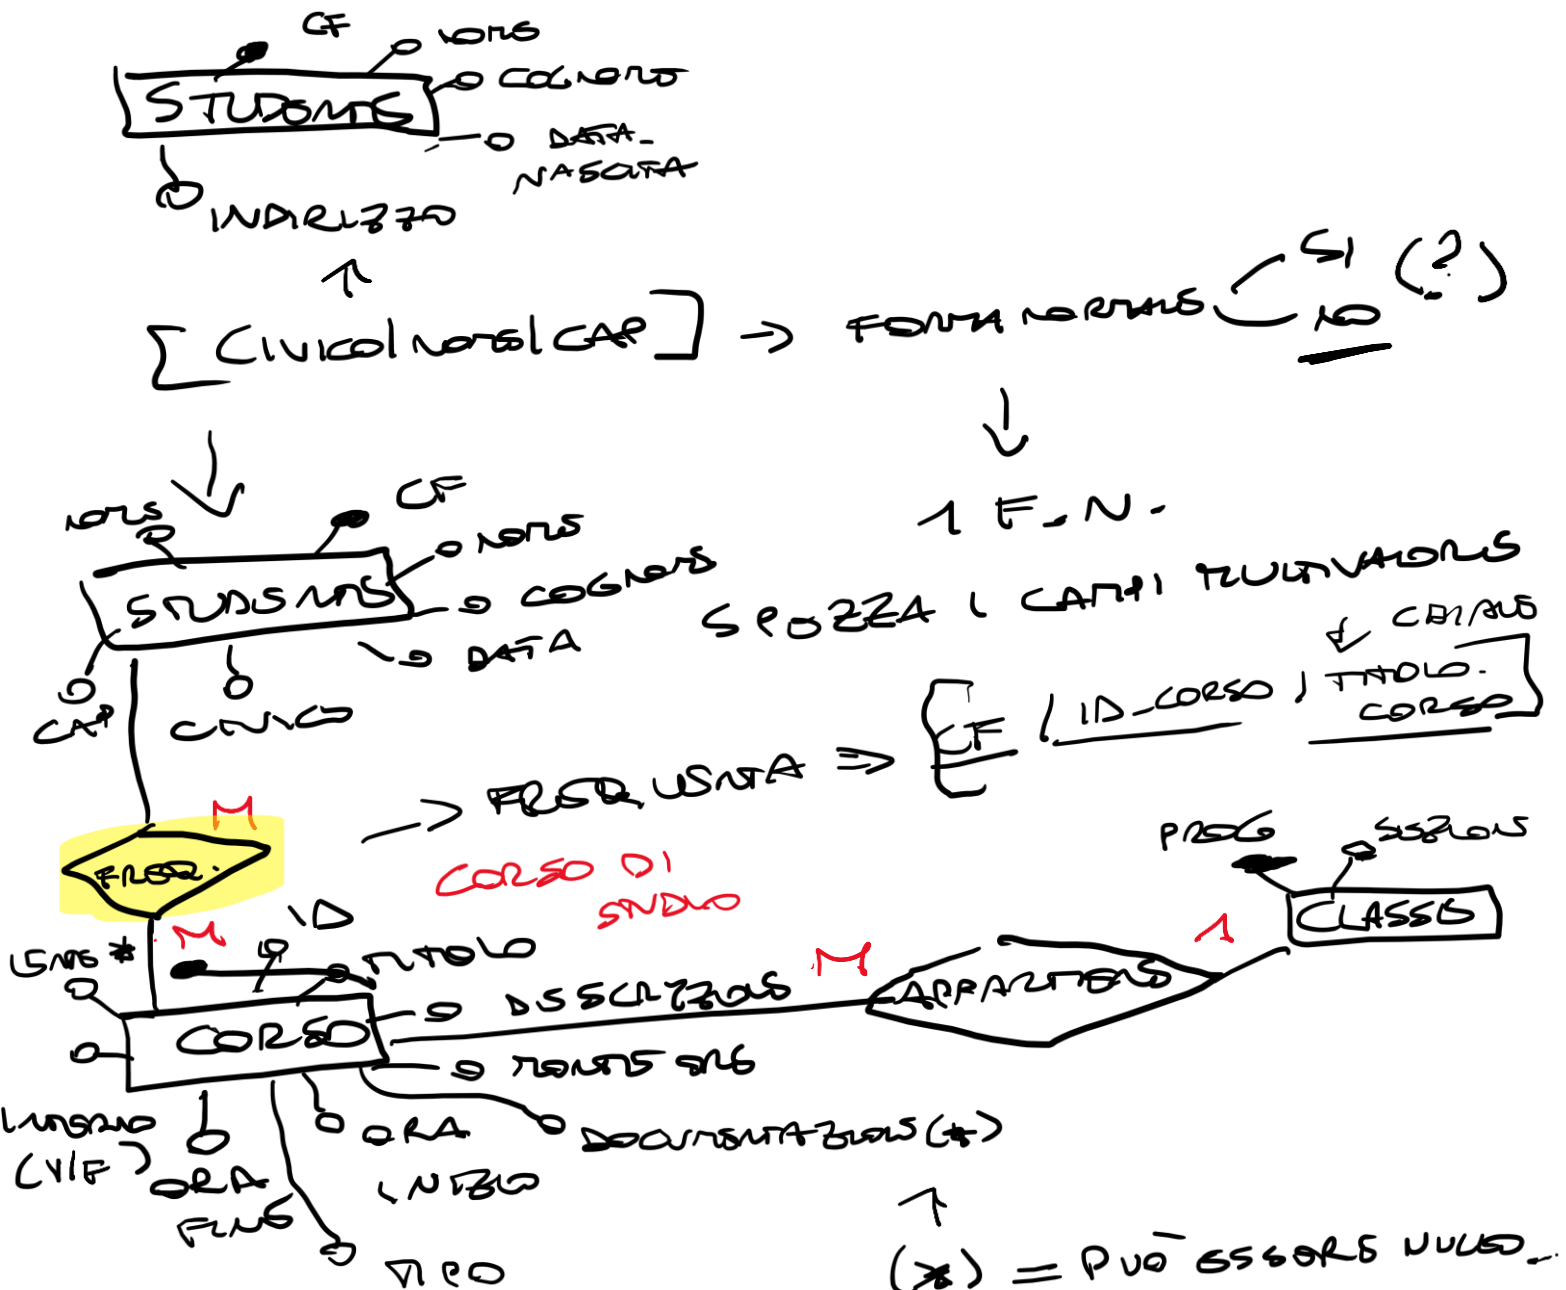 CF
NOME
COGNOME
STUDENTE
DATA_
NASCITA
INDIRIZZO
SI (?)
[CIVICO|NOME|CAP] → FORMA NORMALE
NO
1 F.N.
SPEZZA I CAMPI MULTIVALORE
NOME
CF
NOME
COGNOME
STUDENTE
DATA
CAP
CIVICO
CHIAVE
[CF | ID_CORSO | TITOLO_
CORSO]
→ FREQUENTA ⇒
M
FREQ.
CORSO DI
STUDIO
M
PROG
SEZIONE
CLASSE
1
M
APPARTIENE
ID
TITOLO
*
DESCRIZIONE
CORSO
MONTE ORE
INTERNO
(V/F)
ORA
FINE
ORA
INIZIO
DOCUMENTAZIONE (*)
TIPO
(*) = PUÒ ESSERE NULLO...